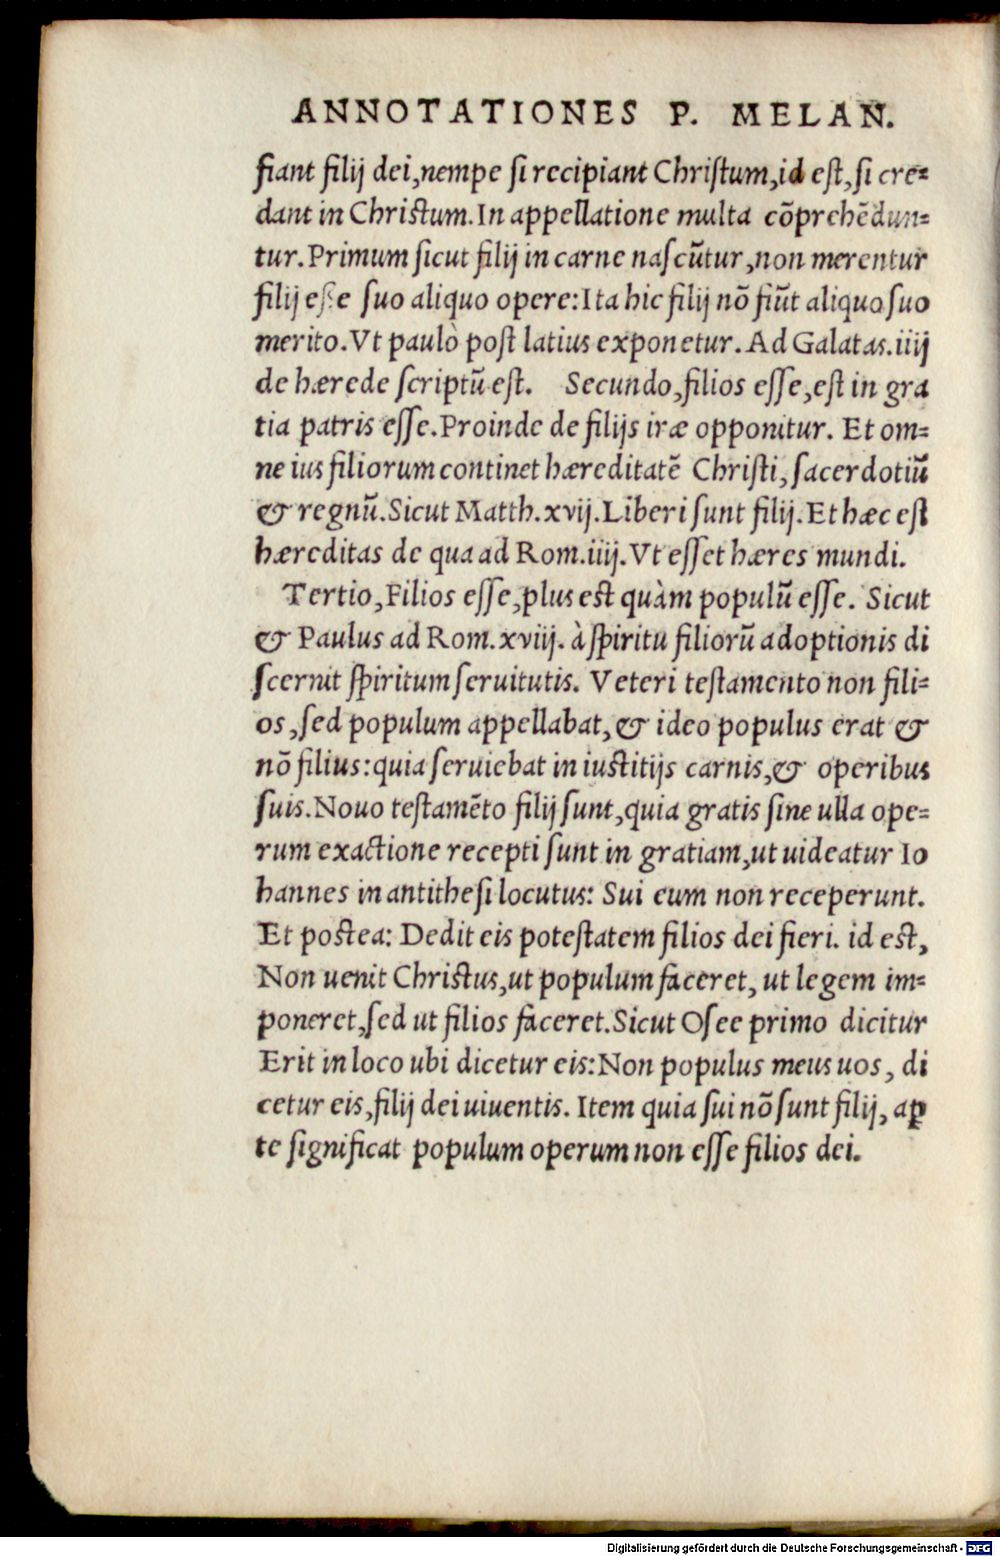 ANNOTATIONES P. MELAN.
fiant filij dei, nempe si recipiant Christum, id est, si cre=
dant in Christum. In appellatione multa cõprehẽdun=
tur. Primum sicut filij in carne nascũtur, non merentur
filij esse suo aliquo opere: Ita hic filij nõ fiũt aliquo suo
merito. Vt paulò post latius exponetur. Ad Galatas. iiij
de hærede scriptũ est. Secundo, filios esse, est in gra
tia patris esse. Proinde de filijs iræ opponitur. Et om=
ne ius filiorum continet hæreditatẽ Christi, sacerdotiũ
& regnũ. Sicut Matth. xvij. Liberi sunt filij. Et hæc est
hæreditas de qua ad Rom. iiij. Vt esset hæres mundi.
Tertio, Filios esse, plus est quàm populũ esse. Sicut
& Paulus ad Rom. xviij. à spiritu filiorũ adoptionis di
scernit spiritum seruitutis. Veteri testamento non fili=
os, sed populum appellabat, & ideo populus erat &
nõ filius: quia seruiebat in iustitijs carnis, & operibus
suis. Nouo testamẽto filij sunt, quia gratis sine ulla ope=
rum exactione recepti sunt in gratiam, ut uideatur Io
hannes in antithesi locutus: Sui eum non receperunt.
Et postea: Dedit eis potestatem filios dei fieri. id est,
Non uenit Christus, ut populum faceret, ut legem im=
poneret, sed ut filios faceret. Sicut Osee primo dicitur
Erit in loco ubi dicetur eis: Non populus meus uos, di
cetur eis, filij dei uiuentis. Item quia sui nõ sunt filij, aꝑ
te significat populum operum non esse filios dei.
Digitalisierung gefördert durch die Deutsche Forschungsgemeinschaft - DFG